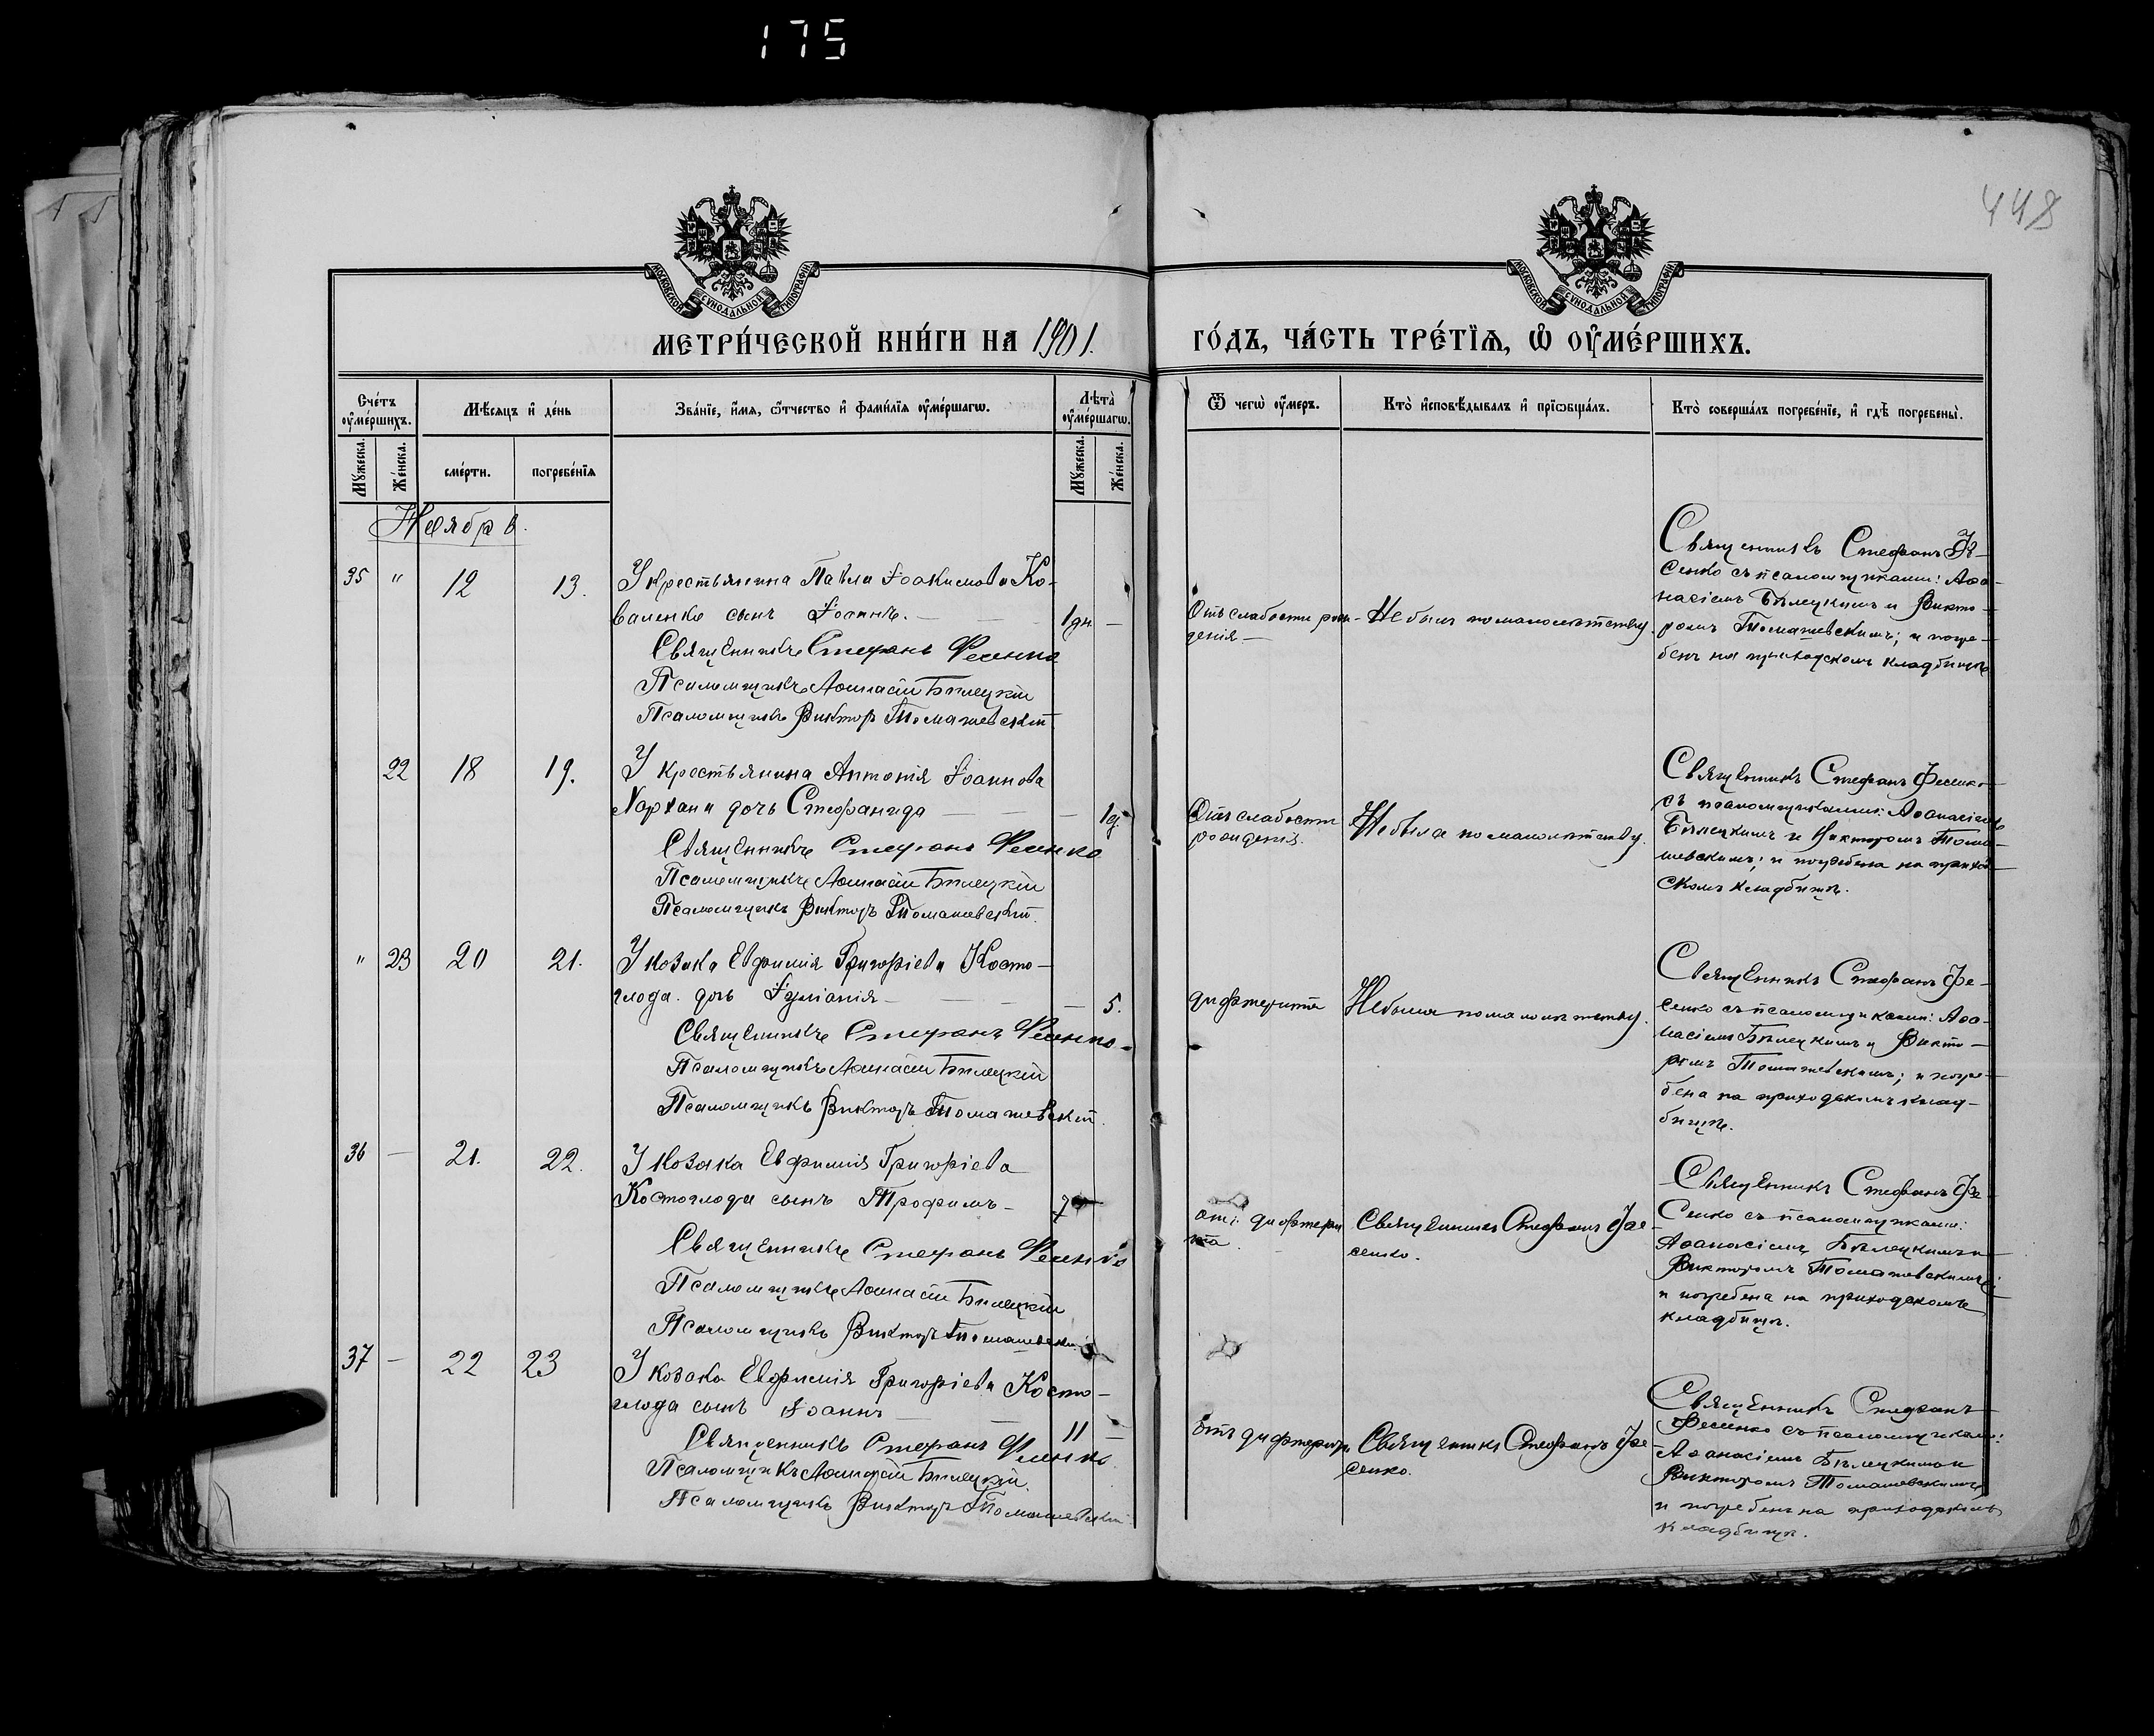 175
448
МОСКОВСКОЙ СѴНОДАЛЬНОЙ ТИПОГРАФІИ
МОСКОВСКОЙ СѴНОДАЛЬНОЙ ТИПОГРАФІИ
МЕТРИ́ЧЕСКОЙ КНИ́ГИ НА 1901.
ГО́ДЪ, ЧА́СТЬ ТРЕ́ТЇѦ, Ѡ҆ ОУ҆МЕ́РШИХЪ.
Сче́тъ оу҆ме́ршихъ.
Мѣ́сяцъ и҆ де́нь
Зва́нїе, и҆́мя, ѻ҆́тчество и҆ фами́лїя оу҆ме́ршагѡ.
Лѣ́та оу҆ме́ршагѡ.
Ѿ чегѡ̀ оу҆́меръ.
Кто̀ и҆сповѣ́дывалъ и҆ прїѡбща́лъ.
Кто̀ соверша́лъ погребе́нїе, и҆ гдѣ̀ погребены̀.
Мꙋ́жеска.
Же́нска.
сме́рти.
погребе́нїя
Мꙋ́жеска.
Же́нска.
Ноября.
35 " 12 13.
У крестьянина Павла Іоакимова Ко-
валенко сынъ Іоаннъ. 1 дн. —
Священникъ Стефанъ Фесенко
Псаломщикъ Аѳанасій Бѣлецкій
Псаломщикъ Викторъ Томашевскій
Отъ слабости рож-
денія —
Не былъ по малолѣтству.
Священникъ Стефанъ Фе-
сенко съ псаломщиками: Аѳа-
насіемъ Бѣлецкимъ и Викто-
ромъ Томашевскимъ; и погре-
бенъ на приходскомъ кладбищѣ
22 18 19.
У крестьянина Антонія Іоаннова
дочь Стефанида — 1 д.
Священникъ Стефанъ Фесенко
Псаломщикъ Аѳанасій Бѣлецкій
Псаломщикъ Викторъ Томашевскій.
Отъ слабости
рожденія.
Не была по малолѣтству.
Священникъ Стефанъ Фесенко
съ псаломщиками: Аѳанасіемъ
Бѣлецкимъ и Викторомъ Тома-
шевскимъ; и погребена на приход-
скомъ кладбищѣ.
" 23 20 21.
У козака Евфимія Григоріева Косто-
глода дочь Іуліанія — 5.
Священникъ Стефанъ Фесенко
Псаломщикъ Аѳанасій Бѣлецкій
Псаломщикъ Викторъ Томашевскій.
дифтерита
Не была по малолѣтству.
Священникъ Стефанъ Фе-
сенко съ псаломщиками: Аѳа-
насіемъ Бѣлецкимъ и Викто-
ромъ Томашевскимъ; и погре-
бена на приходскомъ клад-
бищѣ.
36 — 21. 22.
У козака Евфимія Григоріева
Костоглода сынъ Трофимъ — 7
Священникъ Стефанъ Фесенко
Псаломщикъ Аѳанасій Бѣлецкій
Псаломщикъ Викторъ Томашевскій
отъ дифтери
та
Священникъ Стефанъ Фе-
сенко.
Священникъ Стефанъ Фе-
сенко съ псаломщиками:
Аѳанасіемъ Бѣлецкимъ и
Викторомъ Томашевскимъ;
и погребена на приходскомъ
кладбищѣ.
37 — 22 23
У козака Евфимія Григоріева Косто-
глода сынъ Іоаннъ — 11 —
Священникъ Стефанъ Фесенко
Псаломщикъ Аѳанасій Бѣлецкій.
Псаломщикъ Викторъ Томашевскій
Отъ дифтерита
Священникъ Стефанъ Фе-
сенко.
Священникъ Стефанъ
Фесенко съ псаломщиками:
Аѳанасіемъ Бѣлецкимъ и
Викторомъ Томашевскимъ
и погребенъ на приходскомъ
кладбищѣ.